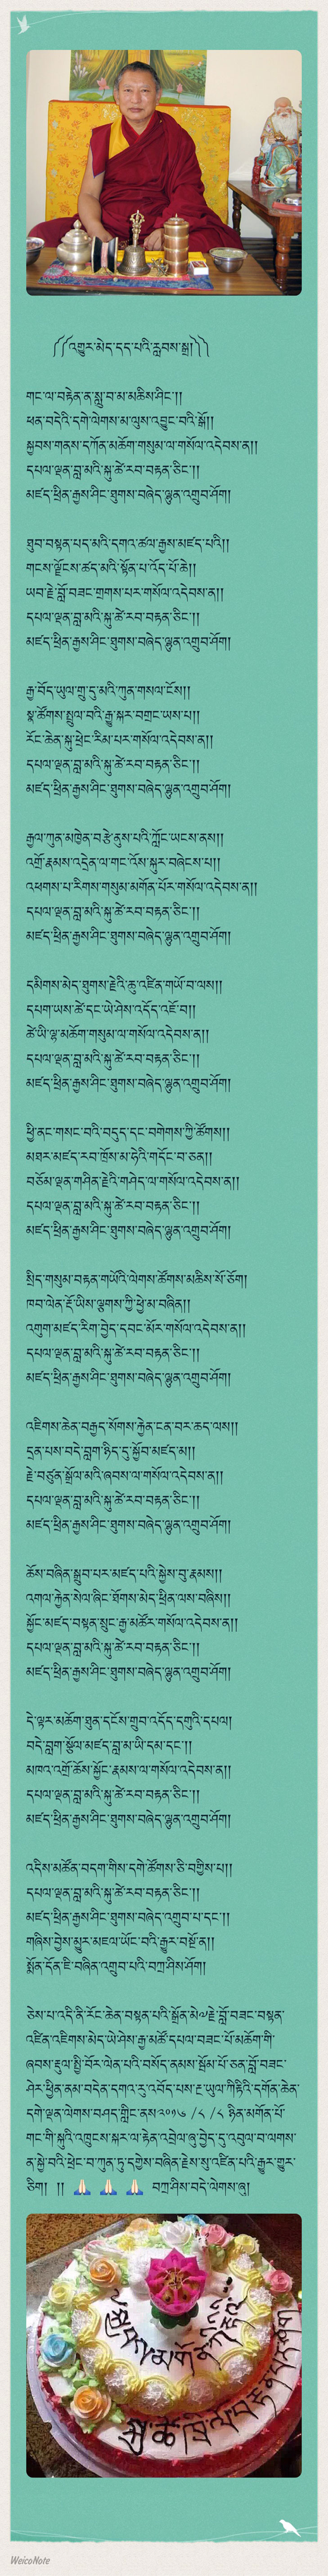 ༼འགྱུར་མེད་དད་པའི་རླབས་སྒྲ།༽
གང་ལ་བརྟེན་ན་སླུ་བ་མ་མཆིས་ཤིང་།།
ཕན་བདེའི་དགེ་ལེགས་མ་ལུས་འབྱུང་བའི་སྒོ།།
སྐྱབས་གནས་དཀོན་མཆོག་གསུམ་ལ་གསོལ་འདེབས་ན།།
དཔལ་ལྡན་བླ་མའི་སྐུ་ཚེ་རབ་བརྟན་ཅིང་།།
མཛད་ཕྲིན་རྒྱས་ཤིང་ཐུགས་བཞེད་ལྷུན་འགྲུབ་ཤོག།
ཐུབ་བསྟན་པད་མའི་དགའ་ཚལ་རྒྱས་མཛད་པའི།།
གངས་ལྗོངས་ཚད་མའི་སྟོན་པ་འོད་པོ་ཆེ།།
ཡབ་རྗེ་བློ་བཟང་གྲགས་པར་གསོལ་འདེབས་ན།།
དཔལ་ལྡན་བླ་མའི་སྐུ་ཚེ་རབ་བརྟན་ཅིང་།།
མཛད་ཕྲིན་རྒྱས་ཤིང་ཐུགས་བཞེད་ལྷུན་འགྲུབ་ཤོག།
རྒྱ་བོད་ཡུལ་གྲུ་དུ་མའི་ཀུན་གསལ་ངོས།།
སྣ་ཚོགས་སྤྲུལ་བའི་རྒྱུ་སྐར་བགྲང་ཡས་པ།།
རོང་ཆེན་སྐུ་ཕྲེང་རིམ་པར་གསོལ་འདེབས་ན།།
དཔལ་ལྡན་བླ་མའི་སྐུ་ཚེ་རབ་བརྟན་ཅིང་།།
མཛད་ཕྲིན་རྒྱས་ཤིང་ཐུགས་བཞེད་ལྷུན་འགྲུབ་ཤོག།
རྒྱལ་ཀུན་མཁྱེན་བརྩེ་ནུས་པའི་ཀློང་ཡངས་ནས།།
འགྲོ་རྣམས་འདྲེན་ལ་གང་འོས་སྐུར་བཞེངས་པ།།
འཕགས་པ་རིགས་གསུམ་མགོན་པོར་གསོལ་འདེབས་ན།།
དཔལ་ལྡན་བླ་མའི་སྐུ་ཚེ་རབ་བརྟན་ཅིང་།།
མཛད་ཕྲིན་རྒྱས་ཤིང་ཐུགས་བཞེད་ལྷུན་འགྲུབ་ཤོག།
དམིགས་མེད་ཐུགས་རྗེའི་ཆུ་འཛིན་གཡོ་བ་ལས།།
དཔག་ཡས་ཚེ་དང་ཡེ་ཤེས་འདོད་འཇོ་བ།།
ཚེ་ཡི་ལྷ་མཆོག་གསུམ་ལ་གསོལ་འདེབས་ན།།
དཔལ་ལྡན་བླ་མའི་སྐུ་ཚེ་རབ་བརྟན་ཅིང་།།
མཛད་ཕྲིན་རྒྱས་ཤིང་ཐུགས་བཞེད་ལྷུན་འགྲུབ་ཤོག།
ཕྱི་ནང་གསང་བའི་བདུད་དང་བགེགས་ཀྱི་ཚོགས།།
མཐར་མཛད་རབ་ཁྲོས་མ་ཧེའི་གདོང་བ་ཅན།།
བཅོམ་ལྡན་གཤིན་རྗེའི་གཤེད་ལ་གསོལ་འདེབས་ན།།
དཔལ་ལྡན་བླ་མའི་སྐུ་ཚེ་རབ་བརྟན་ཅིང་།།
མཛད་ཕྲིན་རྒྱས་ཤིང་ཐུགས་བཞེད་ལྷུན་འགྲུབ་ཤོག།
སྲིད་གསུམ་བརྟན་གཡོའི་ལེགས་ཚོགས་མཆིས་སོ་ཅོག།
ཁབ་ལེན་རྡོ་ཡིས་ལྕགས་ཀྱི་ཕྱེ་མ་བཞིན།།
འགུག་མཛད་རིག་བྱེད་དབང་མོར་གསོལ་འདེབས་ན།།
དཔལ་ལྡན་བླ་མའི་སྐུ་ཚེ་རབ་བརྟན་ཅིང་།།
མཛད་ཕྲིན་རྒྱས་ཤིང་ཐུགས་བཞེད་ལྷུན་འགྲུབ་ཤོག།
འཇིགས་ཆེན་བརྒྱད་སོགས་རྐྱེན་ངན་བར་ཆད་ལས།།
དྲན་པས་བདེ་བླག་ཉིད་དུ་སྐྱོབ་མཛད་མ།།
རྗེ་བཙུན་སྒྲོལ་མའི་ཞབས་ལ་གསོལ་འདེབས་ན།།
དཔལ་ལྡན་བླ་མའི་སྐུ་ཚེ་རབ་བརྟན་ཅིང་།།
མཛད་ཕྲིན་རྒྱས་ཤིང་ཐུགས་བཞེད་ལྷུན་འགྲུབ་ཤོག།
ཆོས་བཞིན་སྒྲུབ་པར་མཛད་པའི་སྐྱེས་བུ་རྣམས།།
འགལ་རྐྱེན་སེལ་ཞིང་ཐོགས་མེད་ཕྲིན་ལས་བཞིས།།
སྐྱོང་མཛད་བསྟན་སྲུང་རྒྱ་མཚོར་གསོལ་འདེབས་ན།།
དཔལ་ལྡན་བླ་མའི་སྐུ་ཚེ་རབ་བརྟན་ཅིང་།།
མཛད་ཕྲིན་རྒྱས་ཤིང་ཐུགས་བཞེད་ལྷུན་འགྲུབ་ཤོག།
དེ་ལྟར་མཆོག་ཐུན་དངོས་གྲུབ་འདོད་དགུའི་དཔལ།
བདེ་བླག་སྩོལ་མཛད་བླ་མ་ཡི་དམ་དང་།།
མཁའ་འགྲོ་ཆོས་སྐྱོང་རྣམས་ལ་གསོལ་འདེབས་ན།།
དཔལ་ལྡན་བླ་མའི་སྐུ་ཚེ་རབ་བརྟན་ཅིང་།།
མཛད་ཕྲིན་རྒྱས་ཤིང་ཐུགས་བཞེད་ལྷུན་འགྲུབ་ཤོག།
འདིས་མཚོན་བདག་གིས་དགེ་ཚོགས་ཅི་བགྱིས་པ།།
དཔལ་ལྡན་བླ་མའི་སྐུ་ཚེ་རབ་བརྟན་ཅིང་།།
མཛད་ཕྲིན་རྒྱས་ཤིང་ཐུགས་བཞེད་འགྲུབ་པ་དང་།།
གཞིས་བྱེས་མྱུར་མཇལ་ཡོང་བའི་རྒྱུར་བསྔོ་ན།།
སྨོན་དོན་ཇི་བཞིན་འགྲུབ་པའི་བཀྲ་ཤིས་ཤོག།
ཅེས་པ་འདི་ནི་རོང་ཆེན་བསྟན་པའི་སྒྲོན་མེ༧རྗེ་བློ་བཟང་བསྟན་
འཛིན་འཇིགས་མེད་ཡེ་ཤེས་རྒྱ་མཚོ་དཔལ་བཟང་པོ་མཆོག་གི་
ཞབས་རྡུལ་སྤྱི་བོར་ལེན་པའི་བསོད་ནམས་སྦོམ་པོ་ཅན་བློ་བཟང་
ཤེར་ཕྱིན་ནམ་བདེན་དགའ་རུ་འབོད་པས་རྔ་ཡུལ་ཀིརྟིའི་དགོན་ཆེན་
དགེ་ལྡན་ལེགས་བཤད་གླིང་ནས༢༠༡༦ /༨ /༨ ཉིན་མགོན་པོ་
གང་གི་སྐུའི་འཁྲུངས་སྐར་ལ་རྟེན་འབྲེལ་ཞུ་བྱེད་དུ་འབུལ་བ་ལགས་
ན་སྐྱེ་བའི་ཕྲེང་བ་ཀུན་ཏུ་དགྱེས་བཞིན་རྗེས་སུ་འཛིན་པའི་རྒྱུར་གྱུར་
ཅིག། །། 🙏🏻 🙏🏻 🙏🏻 བཀྲ་ཤིས་བདེ་ལེགས་ཞུ།
WeicoNote